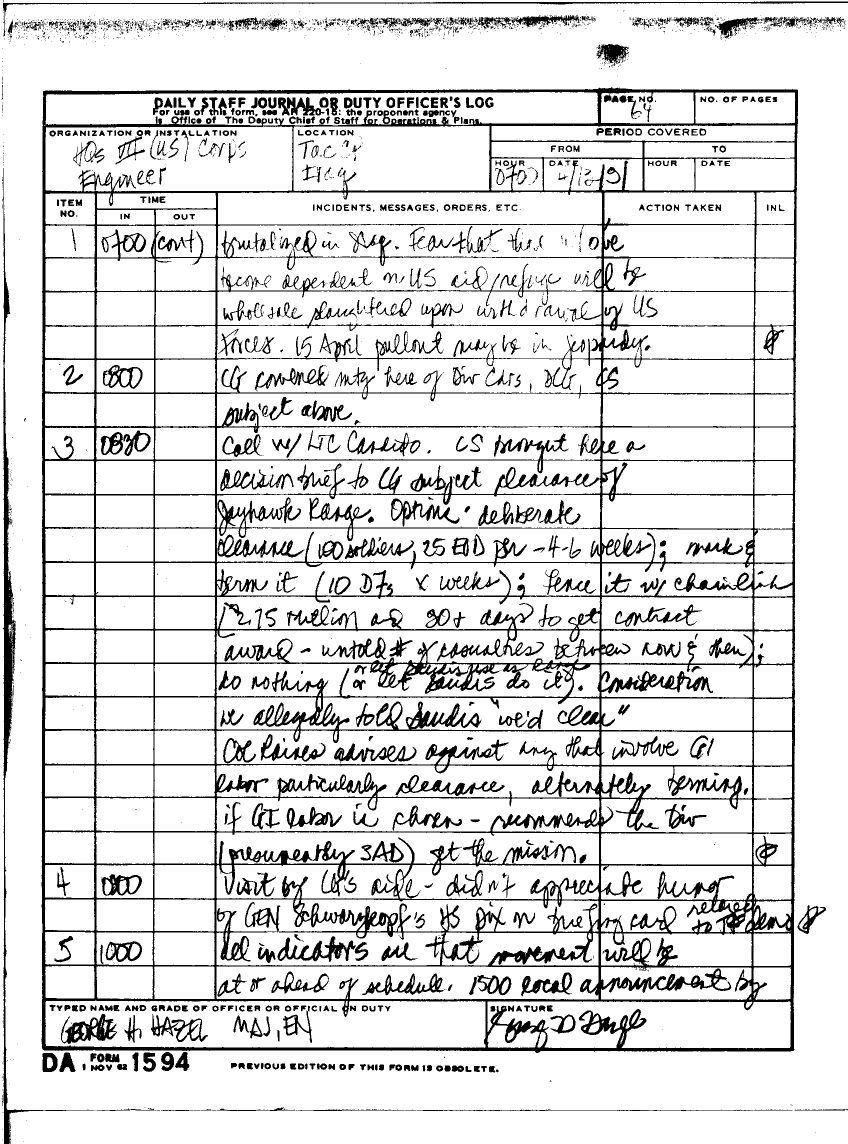 DAILY STAFF JOURNAL OR DUTY OFFICER'S LOG
For use of this form, see AR 220-15: the proponent agency
is Office of The Deputy Chief of Staff for Operations & Plans.
PAGE NO.
64
NO. OF PAGES
ORGANIZATION OR INSTALLATION
HQs VII (US) Corps
Engineer
LOCATION
Tac CP
Iraq
PERIOD COVERED
FROM
TO
HOUR
0700
DATE
4/12/91
HOUR
DATE
ITEM NO.
TIME
IN
OUT
INCIDENTS, MESSAGES, ORDERS, ETC.
ACTION TAKEN
INL
1 0700 (cont) brutalized in Iraq. Fear that those who've
become dependent on US aid/refuge will be
wholesale slaughtered upon withdrawal of US
Forces. 15 April pullout may be in jeopardy.
2 0800 CG convened mtg here of Div Cdrs, DCG, CS
subject above.
3 0830 Call w/ LTC Cardito. CS brought here a
decision brief to CG subject clearance of
Jayhawk Range. Options: deliberate
clearance (100 soldiers, 25 EOD per - 4-6 weeks); mark &
berm it (10 D7s x weeks); fence it w/ chainlink
($2.75 million and 30+ days to get contract
award - untold # of casualties between now & then);
or let Saudis use as range
do nothing (or let Saudis do it). Consideration
we allegedly told Saudis "we'd clear"
Col Raines advises against any that involve GI
labor particularly clearance, alternately berming.
if GI labor is chosen - recommends the Div
(presumeably 3AD) get the mission.
4 0900 Visit by CG's aide - didn't appreciate humor
of GEN Schwarzkopf's HS pix on briefing card related to demo
5 1000 All indicators are that movement will be
at or ahead of schedule. 1500 local announcement by
TYPED NAME AND GRADE OF OFFICER OR OFFICIAL ON DUTY
GEORGE H. HAZEL MAJ, EN
SIGNATURE
DA FORM 1594
1 NOV 62
PREVIOUS EDITION OF THIS FORM IS OBSOLETE.